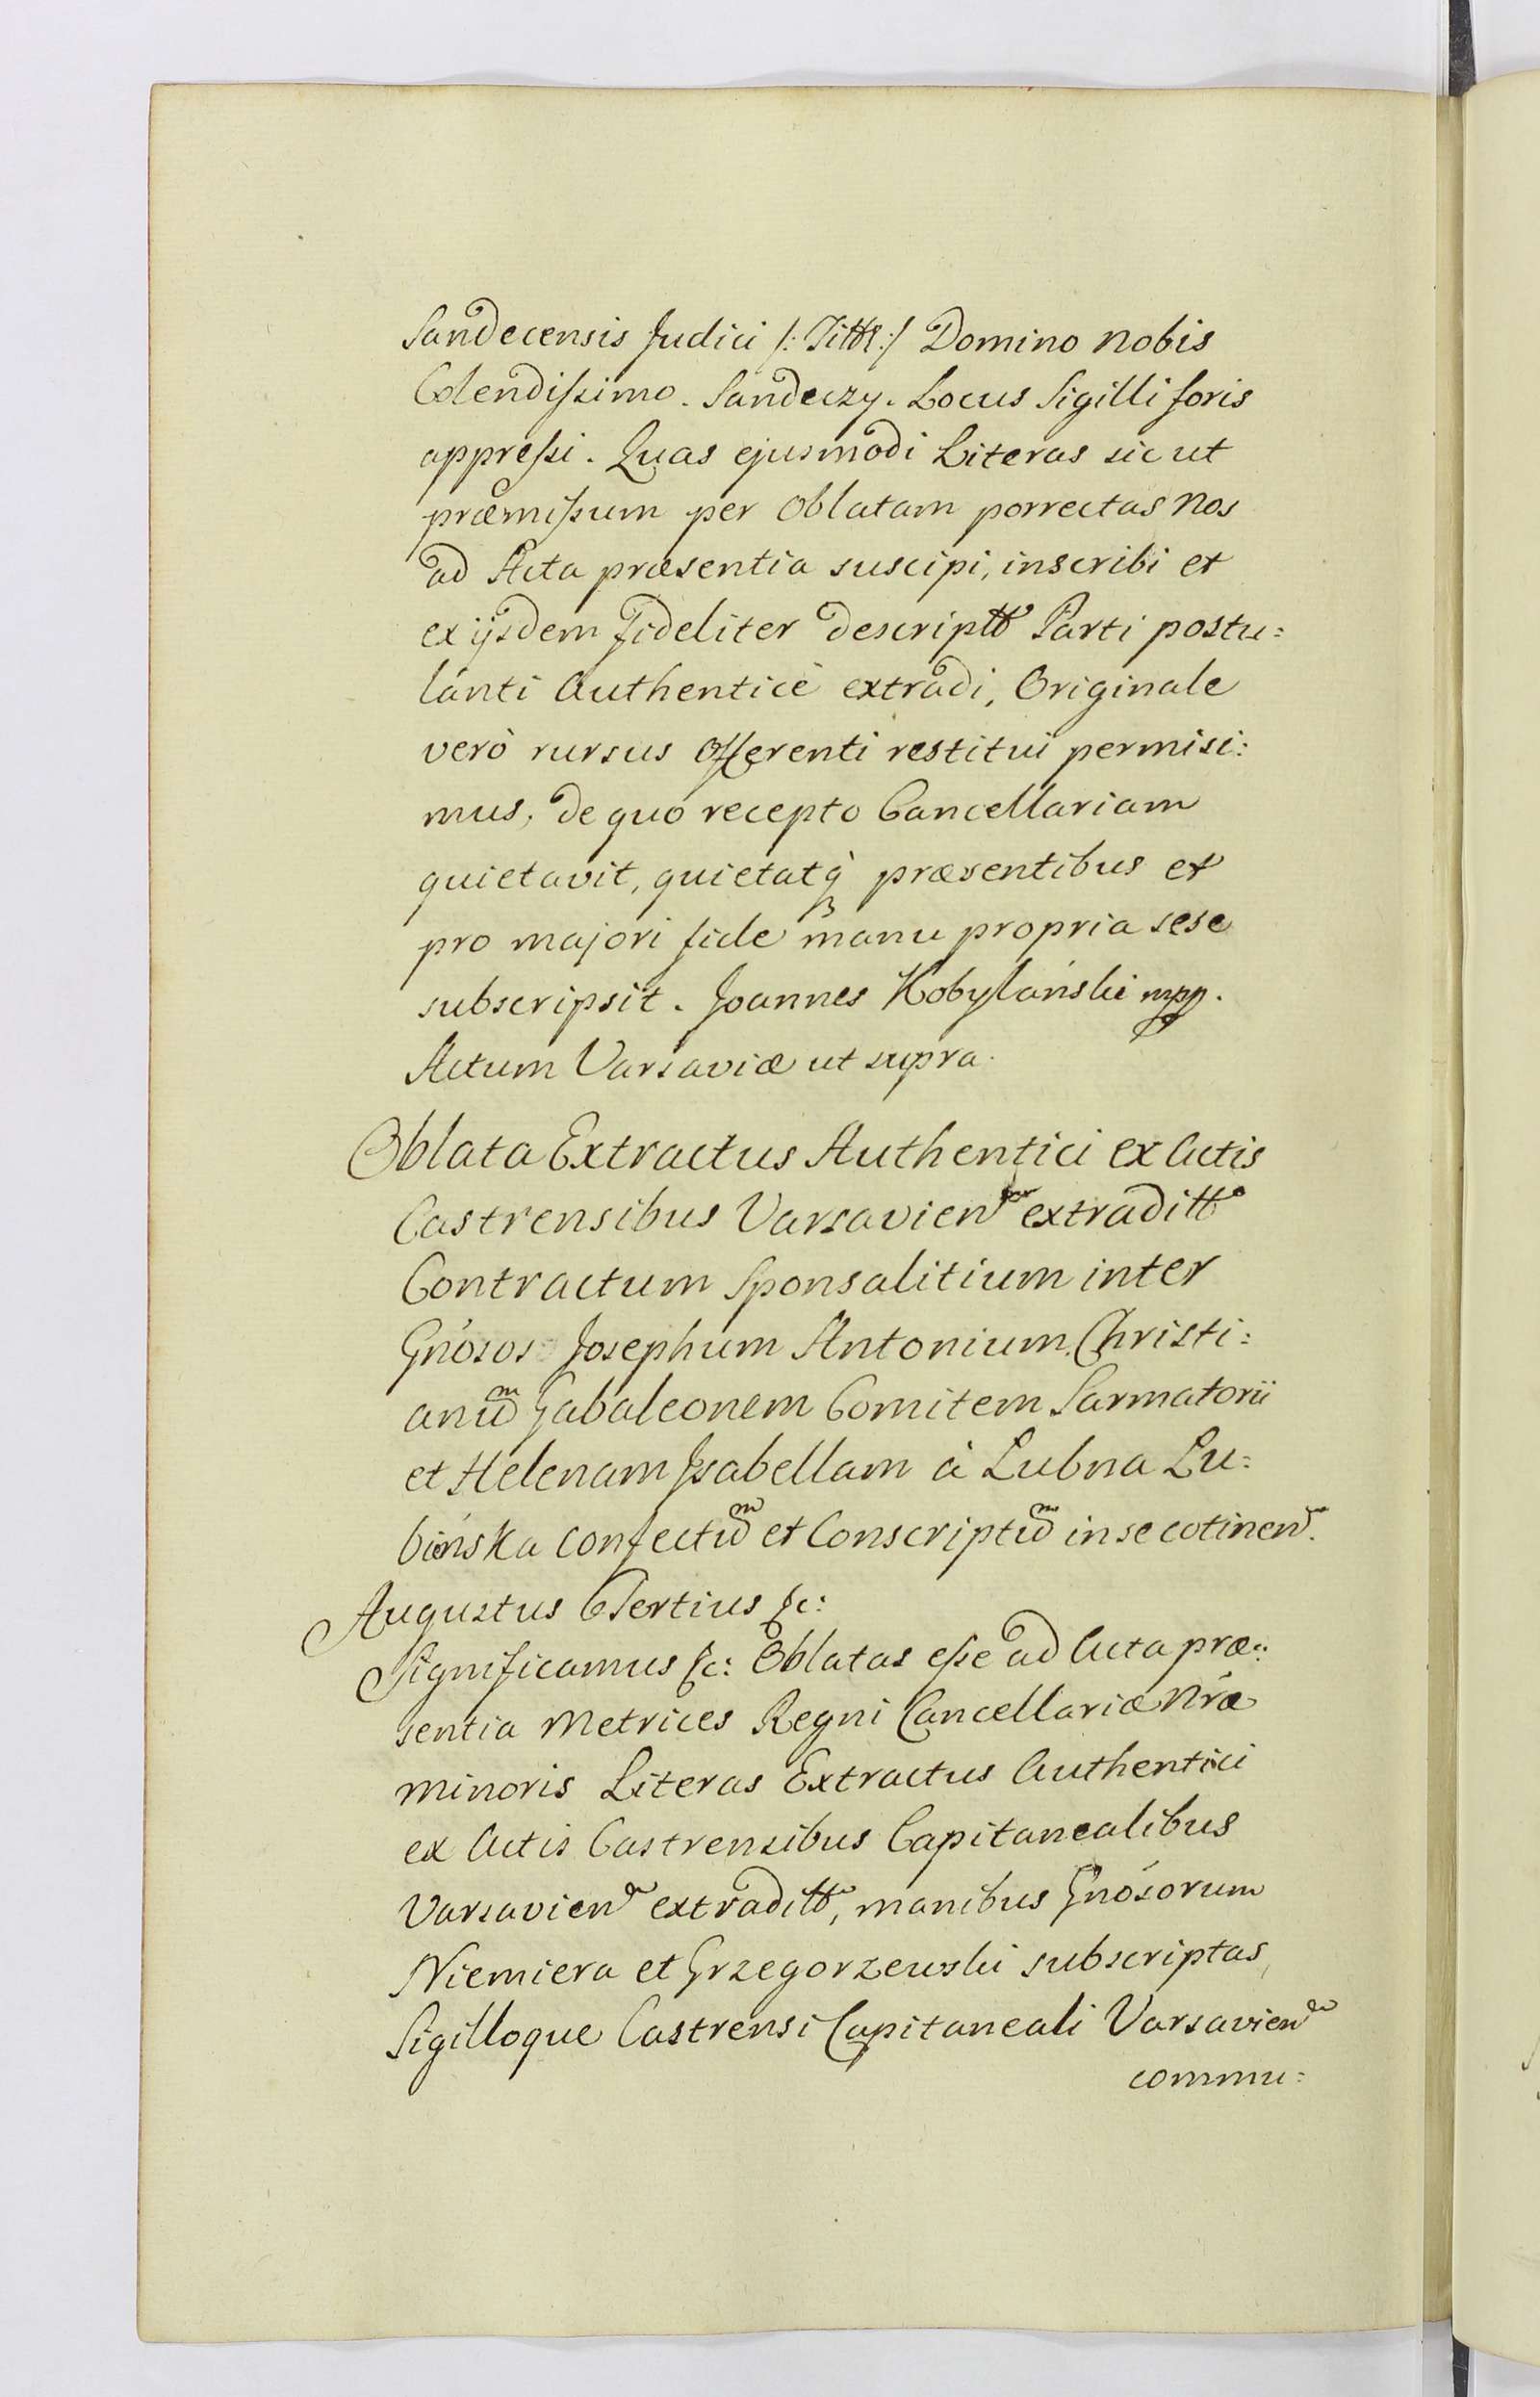 Sandecensis Judici /: Titt: :/ Domino Nobis
Colendissimo. Sandeczy. Locus Sigilli foris
appressi. Quas ejusmodi Literas sic ut
præmissum per Oblatam porrectas Nos
ad Acta præsentia suscipi, inscribi et
ex ijsdem fideliter descriptt Parti postu:
lánti Authenticè extradi, Originale
verò rursus Offerenti restitui permisi:
mus, de quo recepto Cancellariam
quietavit, quietatq̀ præsentibus et
pro majori fide manu propria sese
subscripsit. Joannes Kobylański mpp.
Actum Varsaviæ ut supra.
Oblata Extractus Authentici ex Actis
Castrensibus Varsavien extraditt
Contractum Sponsalitium inter
Gnósos Josephum Antonium Christi:
anũm Gabaleonem Comitem Sarmatorii
et Helenam Isabellam à Lubna Lu:
bienska confectũm et Conscriptũm in se cotinen.
Augustus Tertius &c:
Significamus &c: Oblatas esse ad Acta præ:
sentia Metrices Regni Cancellariæ Nræ
minoris Literas Extractus Authentici
ex Actis Castrensibus Capitanealibus
Varsavien extraditt, manibus Gnósorum
Niemiera et Grzegorzewski subscriptas,
Sigilloque Castrensi Capitaneali Varsavien
commu: